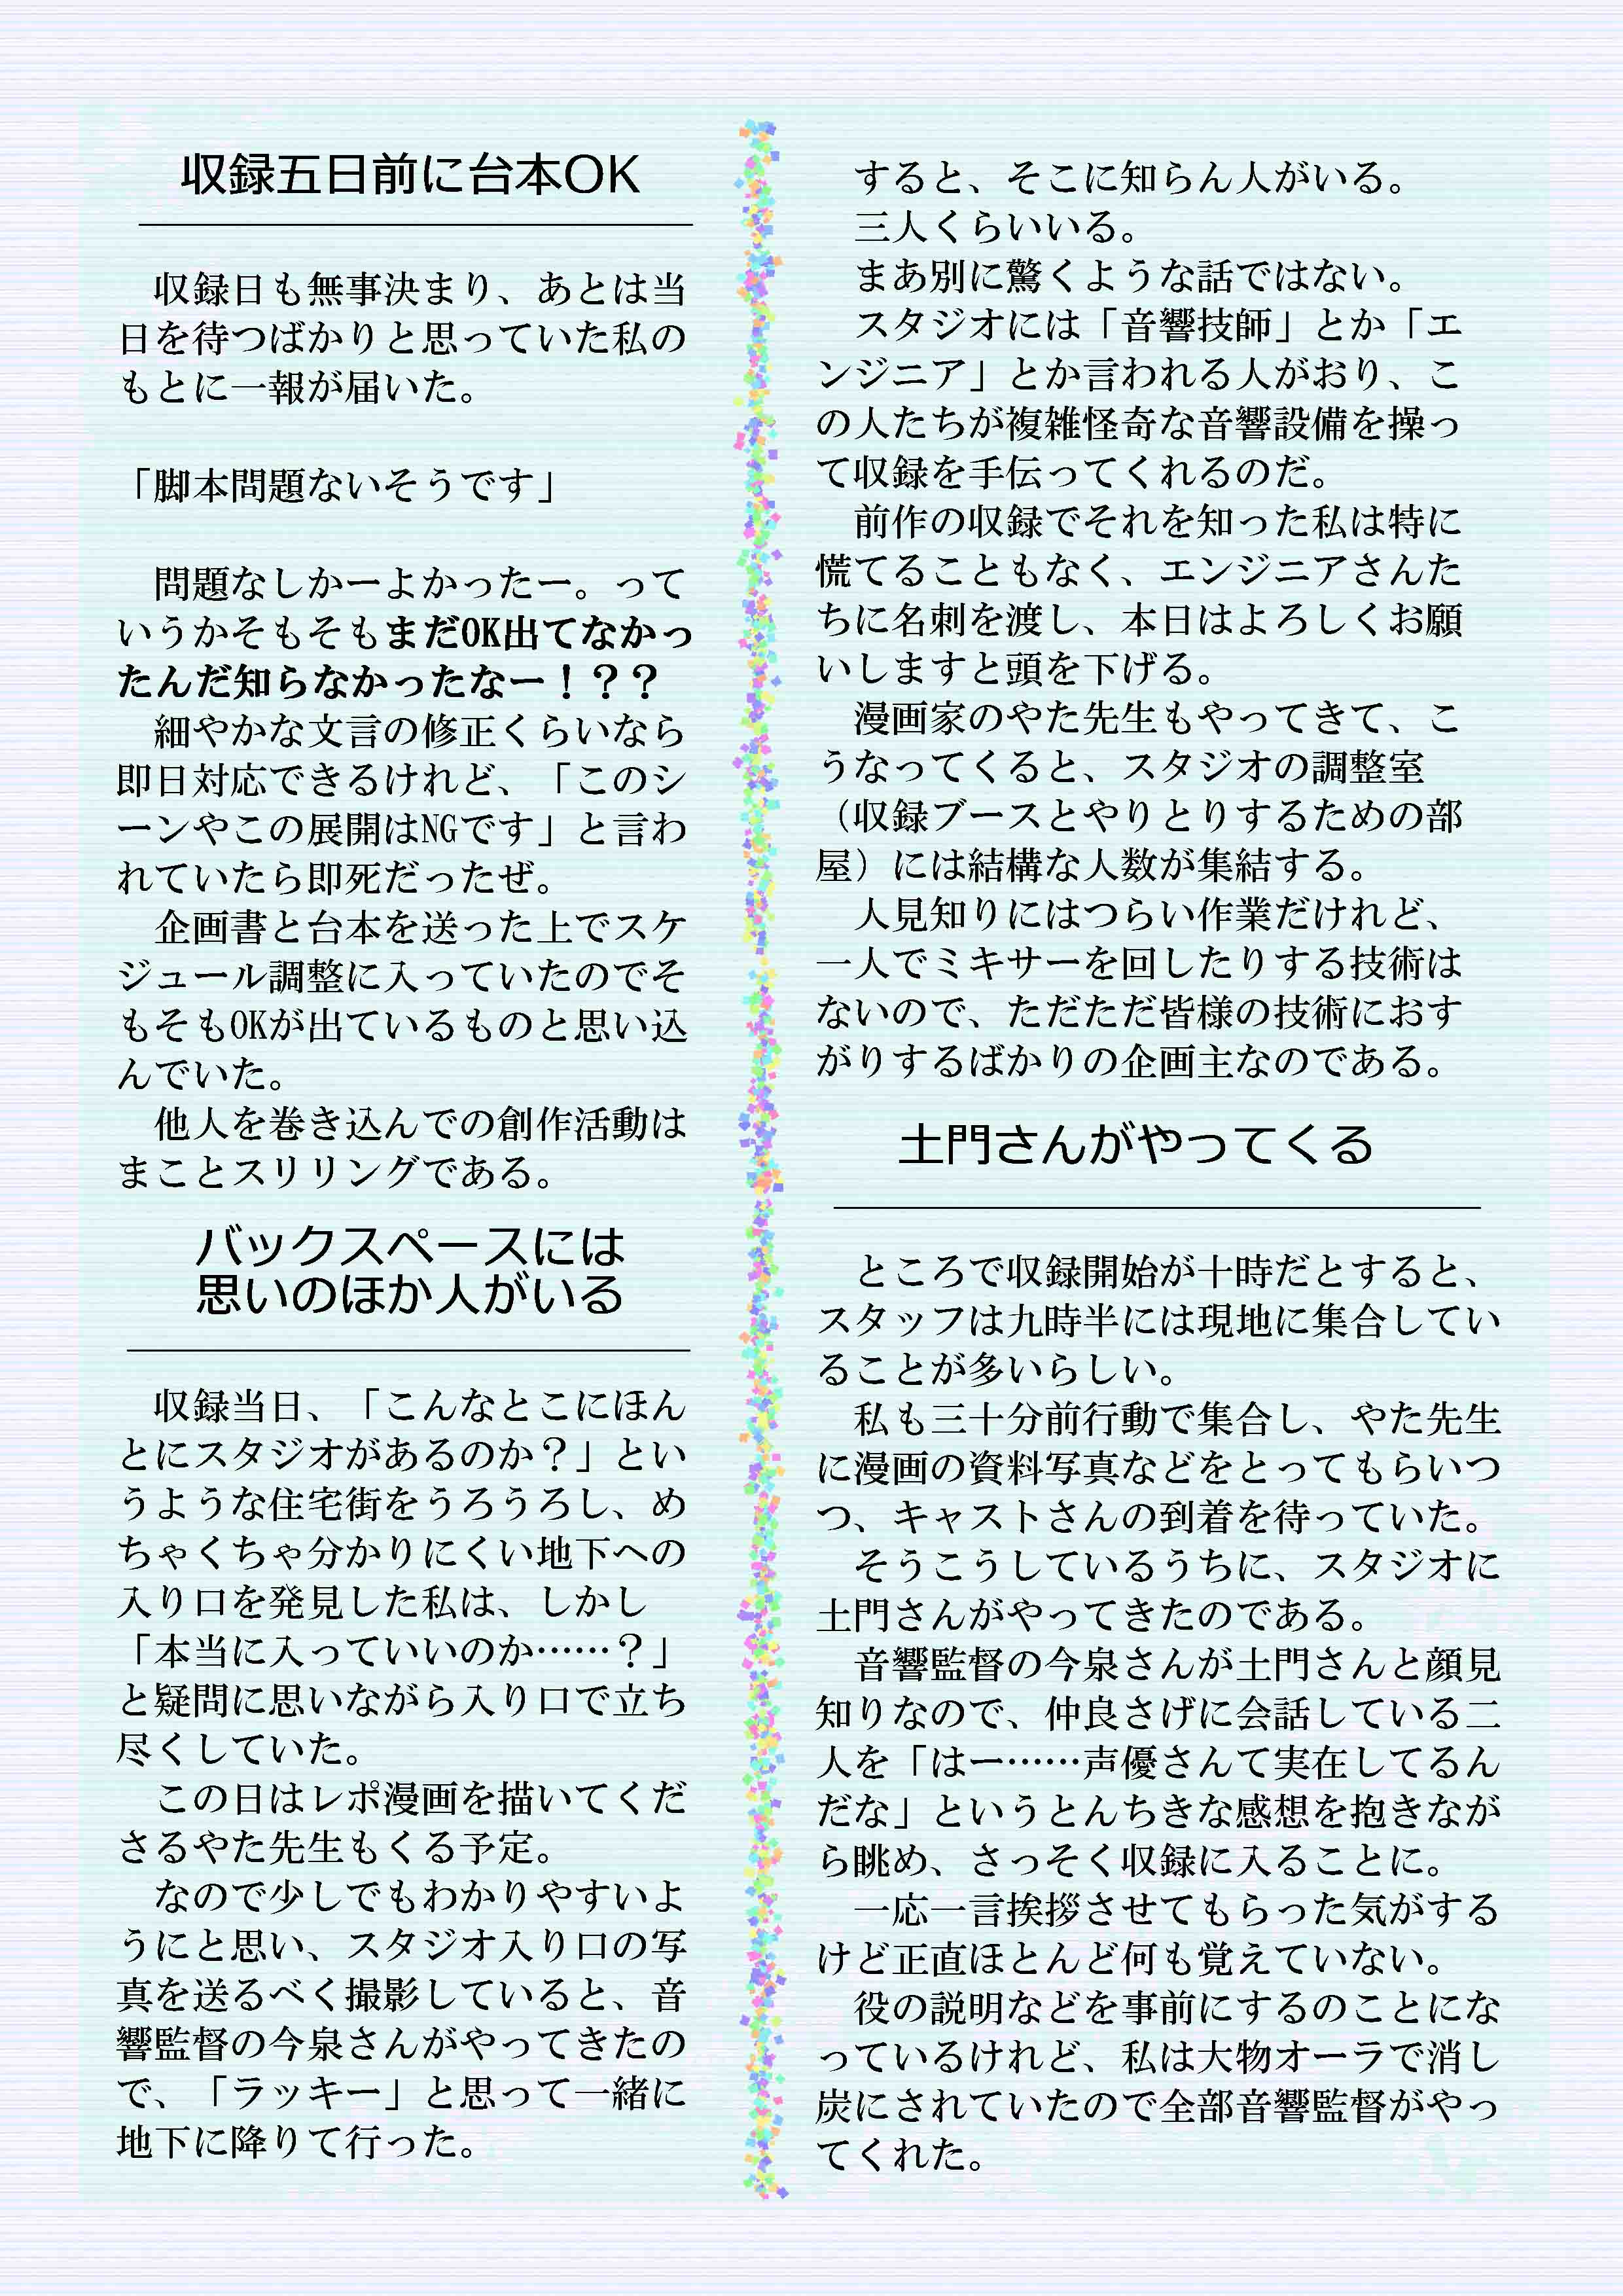 収録五日前に台本OK
　収録日も無事決まり、あとは当
日を待つばかりと思っていた私の
もとに一報が届いた。
「脚本問題ないそうです」
　問題なしかーよかったー。って
いうかそもそもまだOK出てなかっ
たんだ知らなかったなー！？？
　細やかな文言の修正くらいなら
即日対応できるけれど、「このシ
ーンやこの展開はNGです」と言わ
れていたら即死だったぜ。
　企画書と台本を送った上でスケ
ジュール調整に入っていたのでそ
もそもOKが出ているものと思い込
んでいた。
　他人を巻き込んでの創作活動は
まことスリリングである。
バックスペースには
思いのほか人がいる
　収録当日、「こんなとこにほん
とにスタジオがあるのか？」とい
うような住宅街をうろうろし、め
ちゃくちゃ分かりにくい地下への
入り口を発見した私は、しかし
「本当に入っていいのか……？」
と疑問に思いながら入り口で立ち
尽くしていた。
　この日はレポ漫画を描いてくだ
さるやた先生もくる予定。
　なので少しでもわかりやすいよ
うにと思い、スタジオ入り口の写
真を送るべく撮影していると、音
響監督の今泉さんがやってきたの
で、「ラッキー」と思って一緒に
地下に降りて行った。
　すると、そこに知らん人がいる。
　三人くらいいる。
　まあ別に驚くような話ではない。
　スタジオには「音響技師」とか「エ
ンジニア」とか言われる人がおり、こ
の人たちが複雑怪奇な音響設備を操っ
て収録を手伝ってくれるのだ。
　前作の収録でそれを知った私は特に
慌てることもなく、エンジニアさんた
ちに名刺を渡し、本日はよろしくお願
いしますと頭を下げる。
　漫画家のやた先生もやってきて、こ
うなってくると、スタジオの調整室
（収録ブースとやりとりするための部
屋）には結構な人数が集結する。
　人見知りにはつらい作業だけれど、
一人でミキサーを回したりする技術は
ないので、ただただ皆様の技術におす
がりするばかりの企画主なのである。
土門さんがやってくる
　ところで収録開始が十時だとすると、
スタッフは九時半には現地に集合してい
ることが多いらしい。
　私も三十分前行動で集合し、やた先生
に漫画の資料写真などをとってもらいつ
つ、キャストさんの到着を待っていた。
　そうこうしているうちに、スタジオに
土門さんがやってきたのである。
　音響監督の今泉さんが土門さんと顔見
知りなので、仲良さげに会話している二
人を「はー……声優さんて実在してるん
だな」というとんちきな感想を抱きなが
ら眺め、さっそく収録に入ることに。
　一応一言挨拶させてもらった気がする
けど正直ほとんど何も覚えていない。
　役の説明などを事前にするのことにな
っているけれど、私は大物オーラで消し
炭にされていたので全部音響監督がやっ
てくれた。